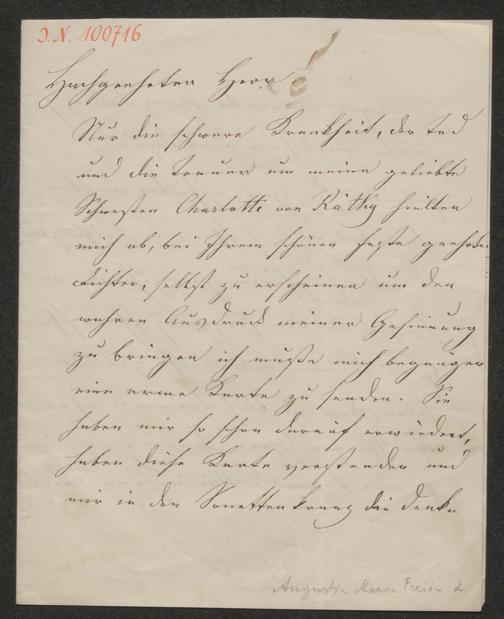 I.N. 100716
Hochgeehrter Herr
Nur die schwere Krankheit, der Tod
und die Trauer um meine geliebte
Schwester Charlotte von Ráthy hielten
mich ab, bei Ihrem schönen Feste geehrter
Dichter, selbst zu erscheinen um den
wahren Ausdruck meiner Gesinnung
zu bringen ich mußte mich begnügen
eine arme Karte zu senden. Sie
haben mir so schön darauf erwiedert,
haben diese Karte verstanden und
mir in den Sonettenkranz die
Auguste Maria Freiin